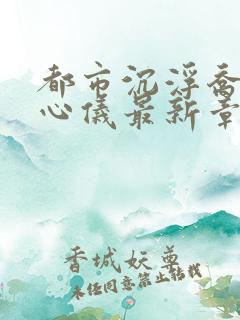 都市沉浮乔
心仪最新章
香城妖尊
未经同意禁止转载